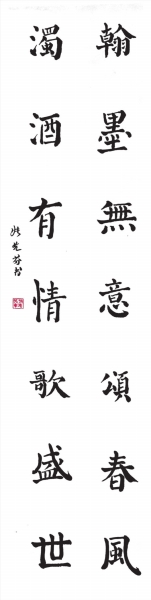 翰墨無意頌春風
濁酒有情歌盛世